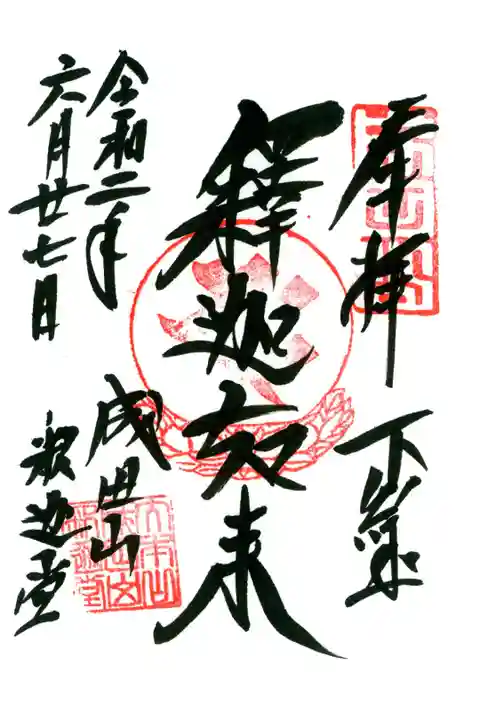 奉拝
下総
釋迦如来
令和二年
六月廿七日
成田山
釈迦堂